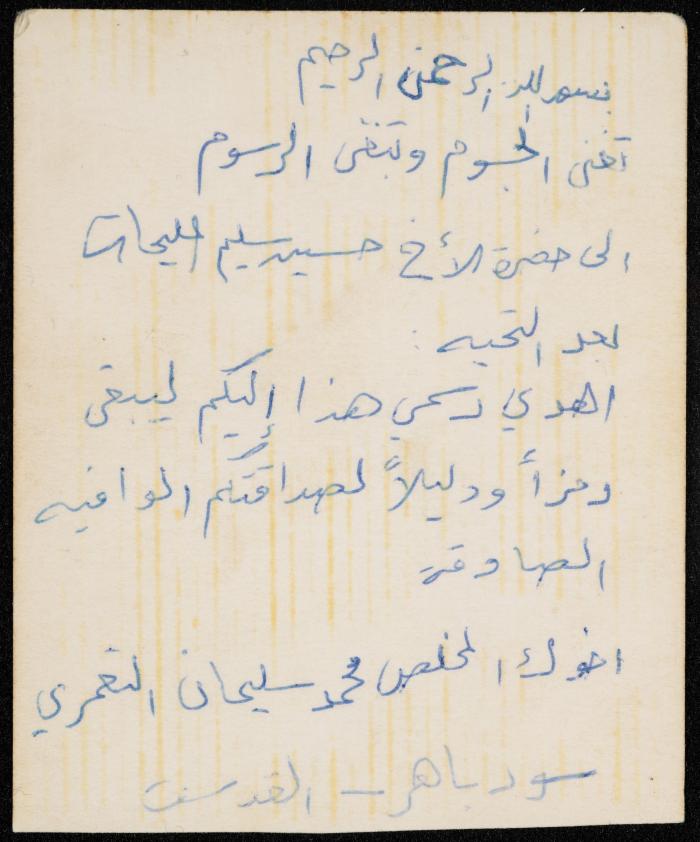 بسم الله الرحمن الرحيم
تفنى الجسوم وتبقى الرسوم
الى حضرة الأخ حسين سليم
بعد التحيه :
اهدي رسمي هذا إليكم ليبقى
رمزاً ودليلاً لصداقتكم الوافيه
الصادقة
اخوك المخلص محمد سليمان النعمري
صور باهر - القدس